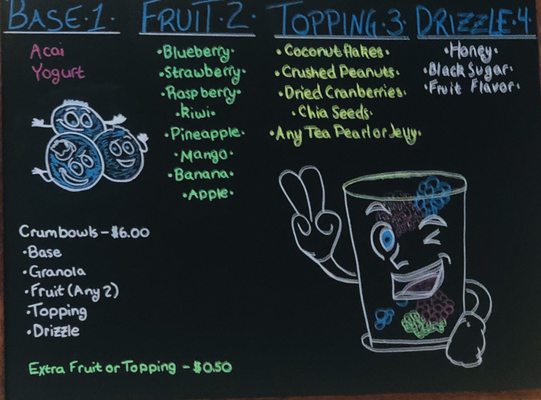 BASE·1·
Acai
Yogurt
FRUIT·2·
·Blueberry·
·Strawberry·
·Raspberry·
·Kiwi·
·Pineapple·
·Mango·
·Banana·
·Apple·
TOPPING·3·
·Coconut flakes·
·Crushed Peanuts·
·Dried Cranberries·
·Chia Seeds·
·Any Tea Pearl or Jelly·
DRIZZLE·4·
·Honey·
·Black Sugar·
·Fruit Flavor·
Crumbowls - $6.00
·Base
·Granola
·Fruit (Any 2)
·Topping
·Drizzle
Extra Fruit or Topping - $0.50